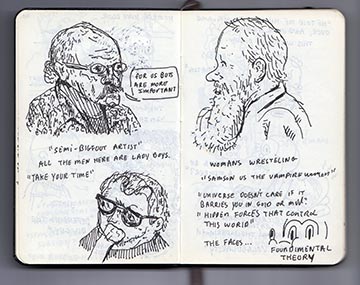 FOR US BOYS
ARE MORE
IMPORTANT
"SEMI-BIGFOOT ARTIST"
ALL THE MEN HERE ARE LADY BOYS.
"TAKE YOUR TIME"
WOMANS WRESTELING
"SAMSON US THE VAMPIRE WOMENS"
"UNIVERSE DOESN'T CARE IF IT
BARRIES YOU IN GOLD OR MUD"
"HIDDEN FORCES THAT CONTROL
THIS WORLD"
THE FACES...
FOUNDIMENTAL
THEORY